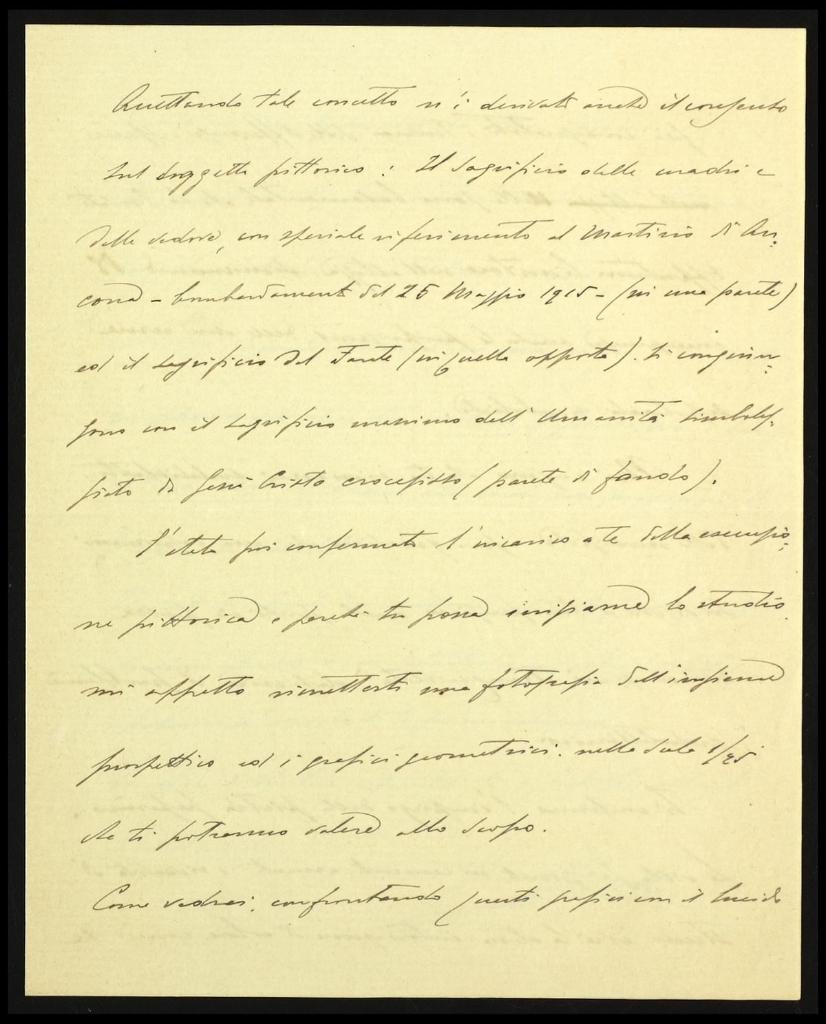 Accettando tale concetto si è derivato anche il consenso
sul soggetto pittorico: Il sagrificio delle madri e
delle vedove, con speciale riferimento al Martirio di An=
cona - bombardamento del 25 Maggio 1915 - (in una parete)
ed il sagrificio del Fante (in quella opposta). Si congiun=
gono con il sagrificio massimo dell'Umanità simboleg=
giato da Gesù Cristo crocefisso (parete di fondo).
È stato poi confermato l'incarico a te della esecuzio=
ne pittorica e perché tu possa iniziarne lo studio
mi affretto rimetterti una fotografia dell'insieme
prospettico ed i grafici geometrici nella scala 1/25
che ti potranno valere allo scopo.
Come vedrai, confrontando questi grafici con il lucido